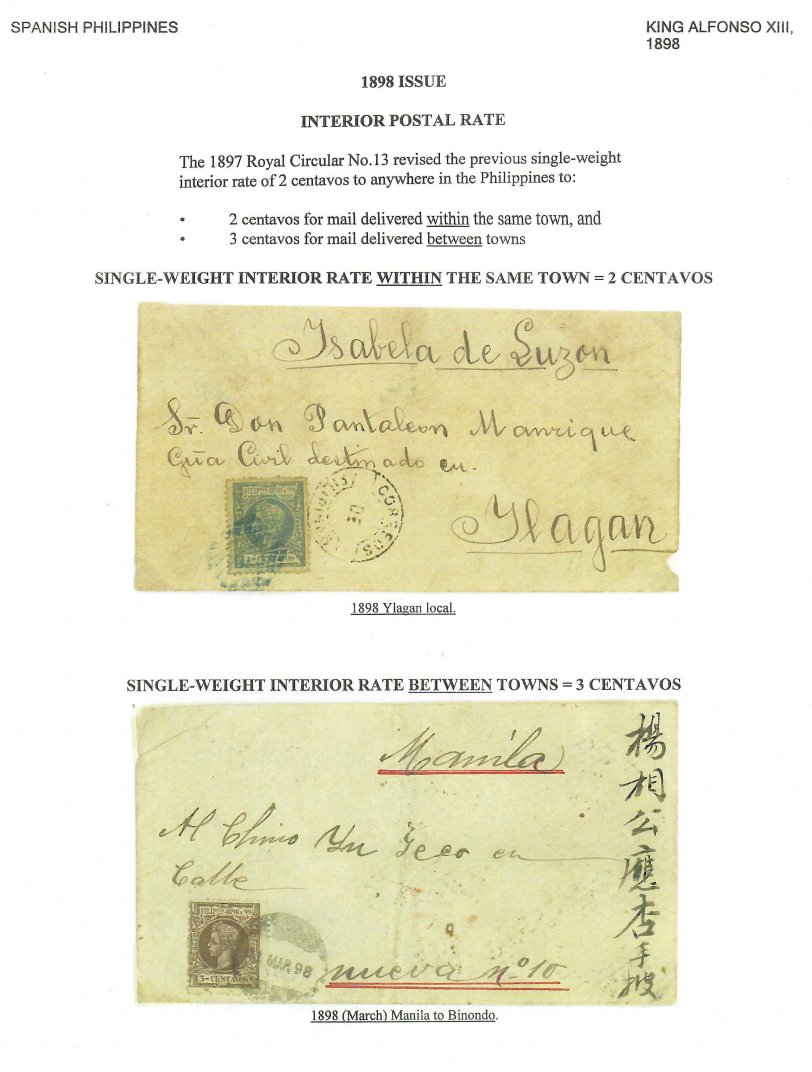 SPANISH PHILIPPINES
KING ALFONSO XIII,
1898
1898 ISSUE
INTERIOR POSTAL RATE
The 1897 Royal Circular No.13 revised the previous single-weight
interior rate of 2 centavos to anywhere in the Philippines to:
• 2 centavos for mail delivered within the same town, and
• 3 centavos for mail delivered between towns
SINGLE-WEIGHT INTERIOR RATE WITHIN THE SAME TOWN = 2 CENTAVOS
Isabela de Luzon
Sr. Don Pantaleon Manrique
Gūa Civil destinado en.
Ylagan
CORREOS
1898 Ylagan local.
SINGLE-WEIGHT INTERIOR RATE BETWEEN TOWNS = 3 CENTAVOS
Manila
Al Chino Yu Teco en
Calle
nueva nº 10
楊相公應杏手披
FILIPNAS-1898 y 99.
3-CENTAVOS
MAR 98
1898 (March) Manila to Binondo.